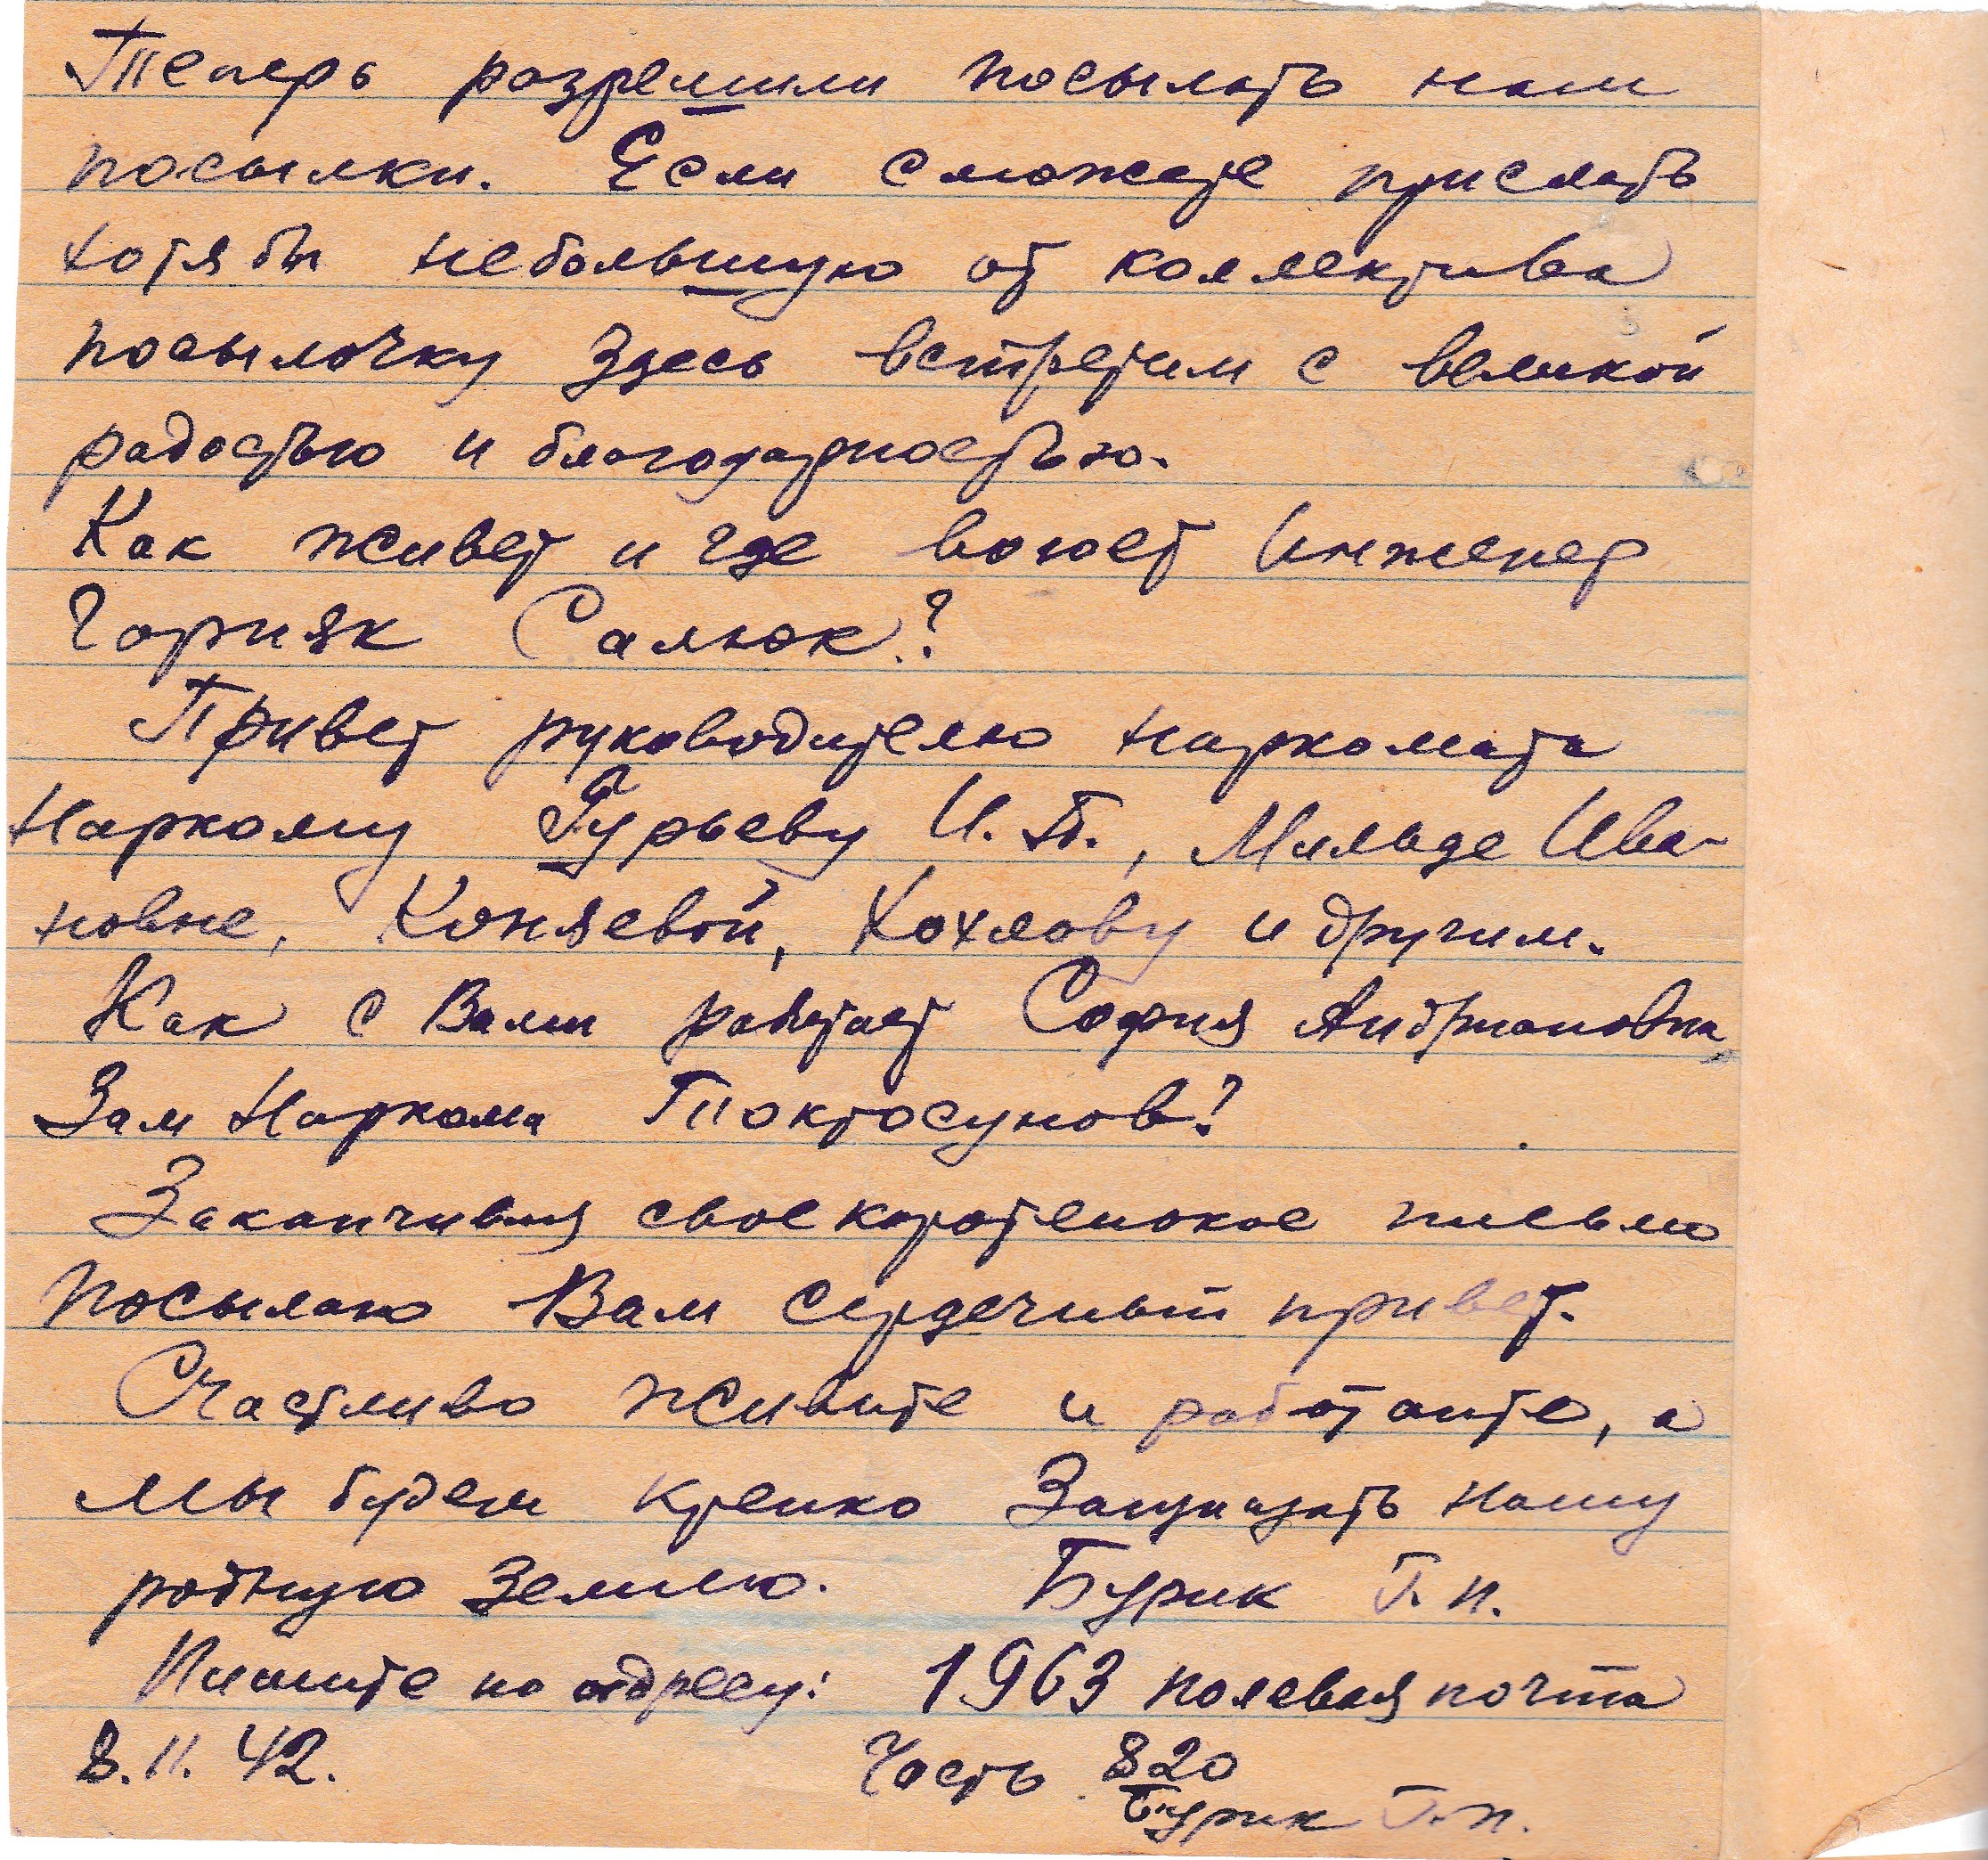 Теперь разрешили посылать нам
посылки. Если сможете прислать
хотя бы небольшую от коллектива
посылочку здесь встретим с великой
радостью и благодарностью.
Как живет и где воюет Инженер
Горняк Салюк?
Привет руководителю наркомата
Наркому Гурьеву И. Т., Мильде Ива-
новне, Коняевой, Хохлову и другим.
Как с Вами работает София Андриановна,
Зам Наркома Токтосунов?
Заканчивая свое коротенокое письмо
посылаю Вам сердечный привет.
Счастливо живите и работайте, а
мы будем крепко Защищать нашу
родную землю. Бурик Г. П.
Пишите по адресу: 1963 полевая почта
8.11.42. Часть 820
Бурик Г. П.